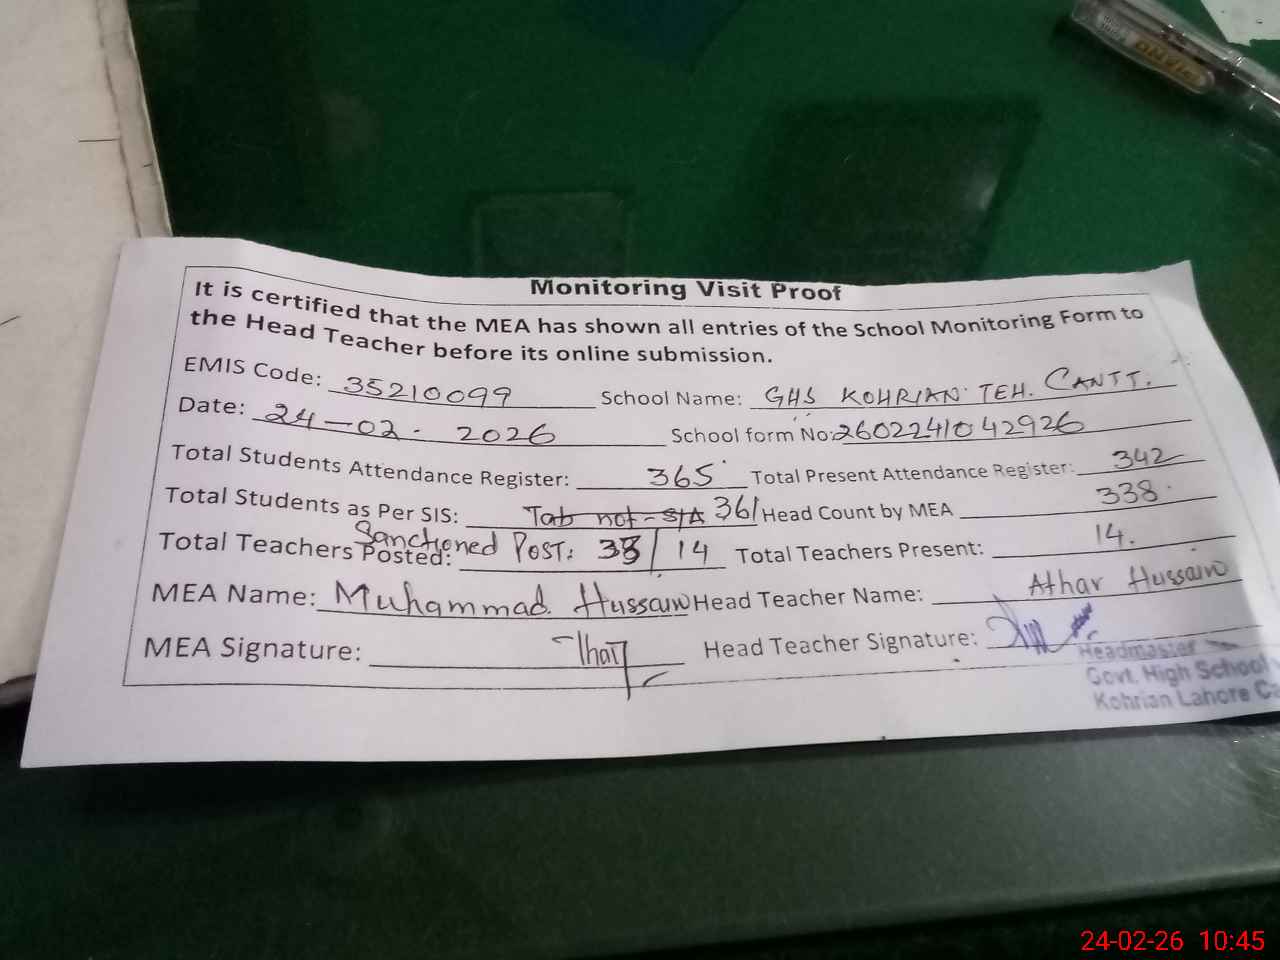 Monitoring Visit Proof
It is certified that the MEA has shown all entries of the School Monitoring Form to
the Head Teacher before its online submission.
EMIS Code: 35210099 School Name: GHS KOHRIAN TEH. CANTT.
Date: 24-02-2026 School form No: 260224104 2926
Total Students Attendance Register: 365 Total Present Attendance Register: 342
Total Students as Per SIS: Tab not - SIA 361 Head Count by MEA 338
Sanctioned POST: 38 / 14
Total Teachers Posted: Total Teachers Present: 14.
MEA Name: Muhammad Hussain Head Teacher Name: Athar Hussain
MEA Signature: Head Teacher Signature:
Headmaster
Govt. High School
Kohrian Lahore
24-02-26 10:45